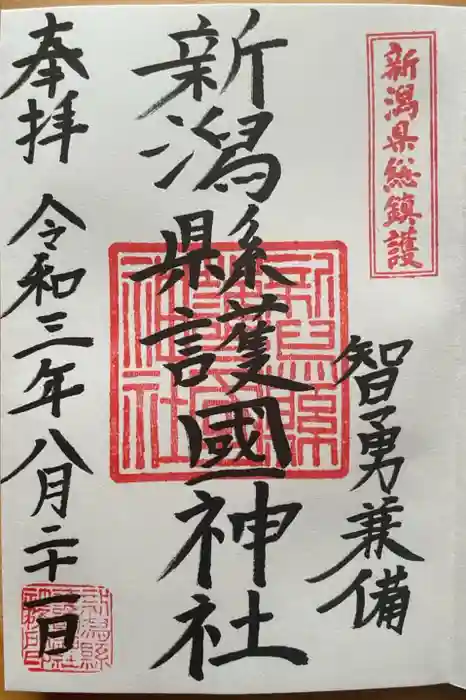 新潟県総鎮護
智勇兼備
新潟縣護國神社
奉拝
令和三年八月二十一日